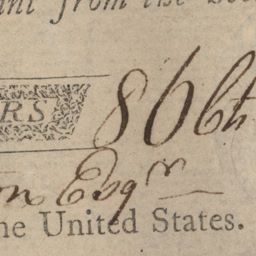 ant from the
RS 86 Cts
on Esqr
he United States.